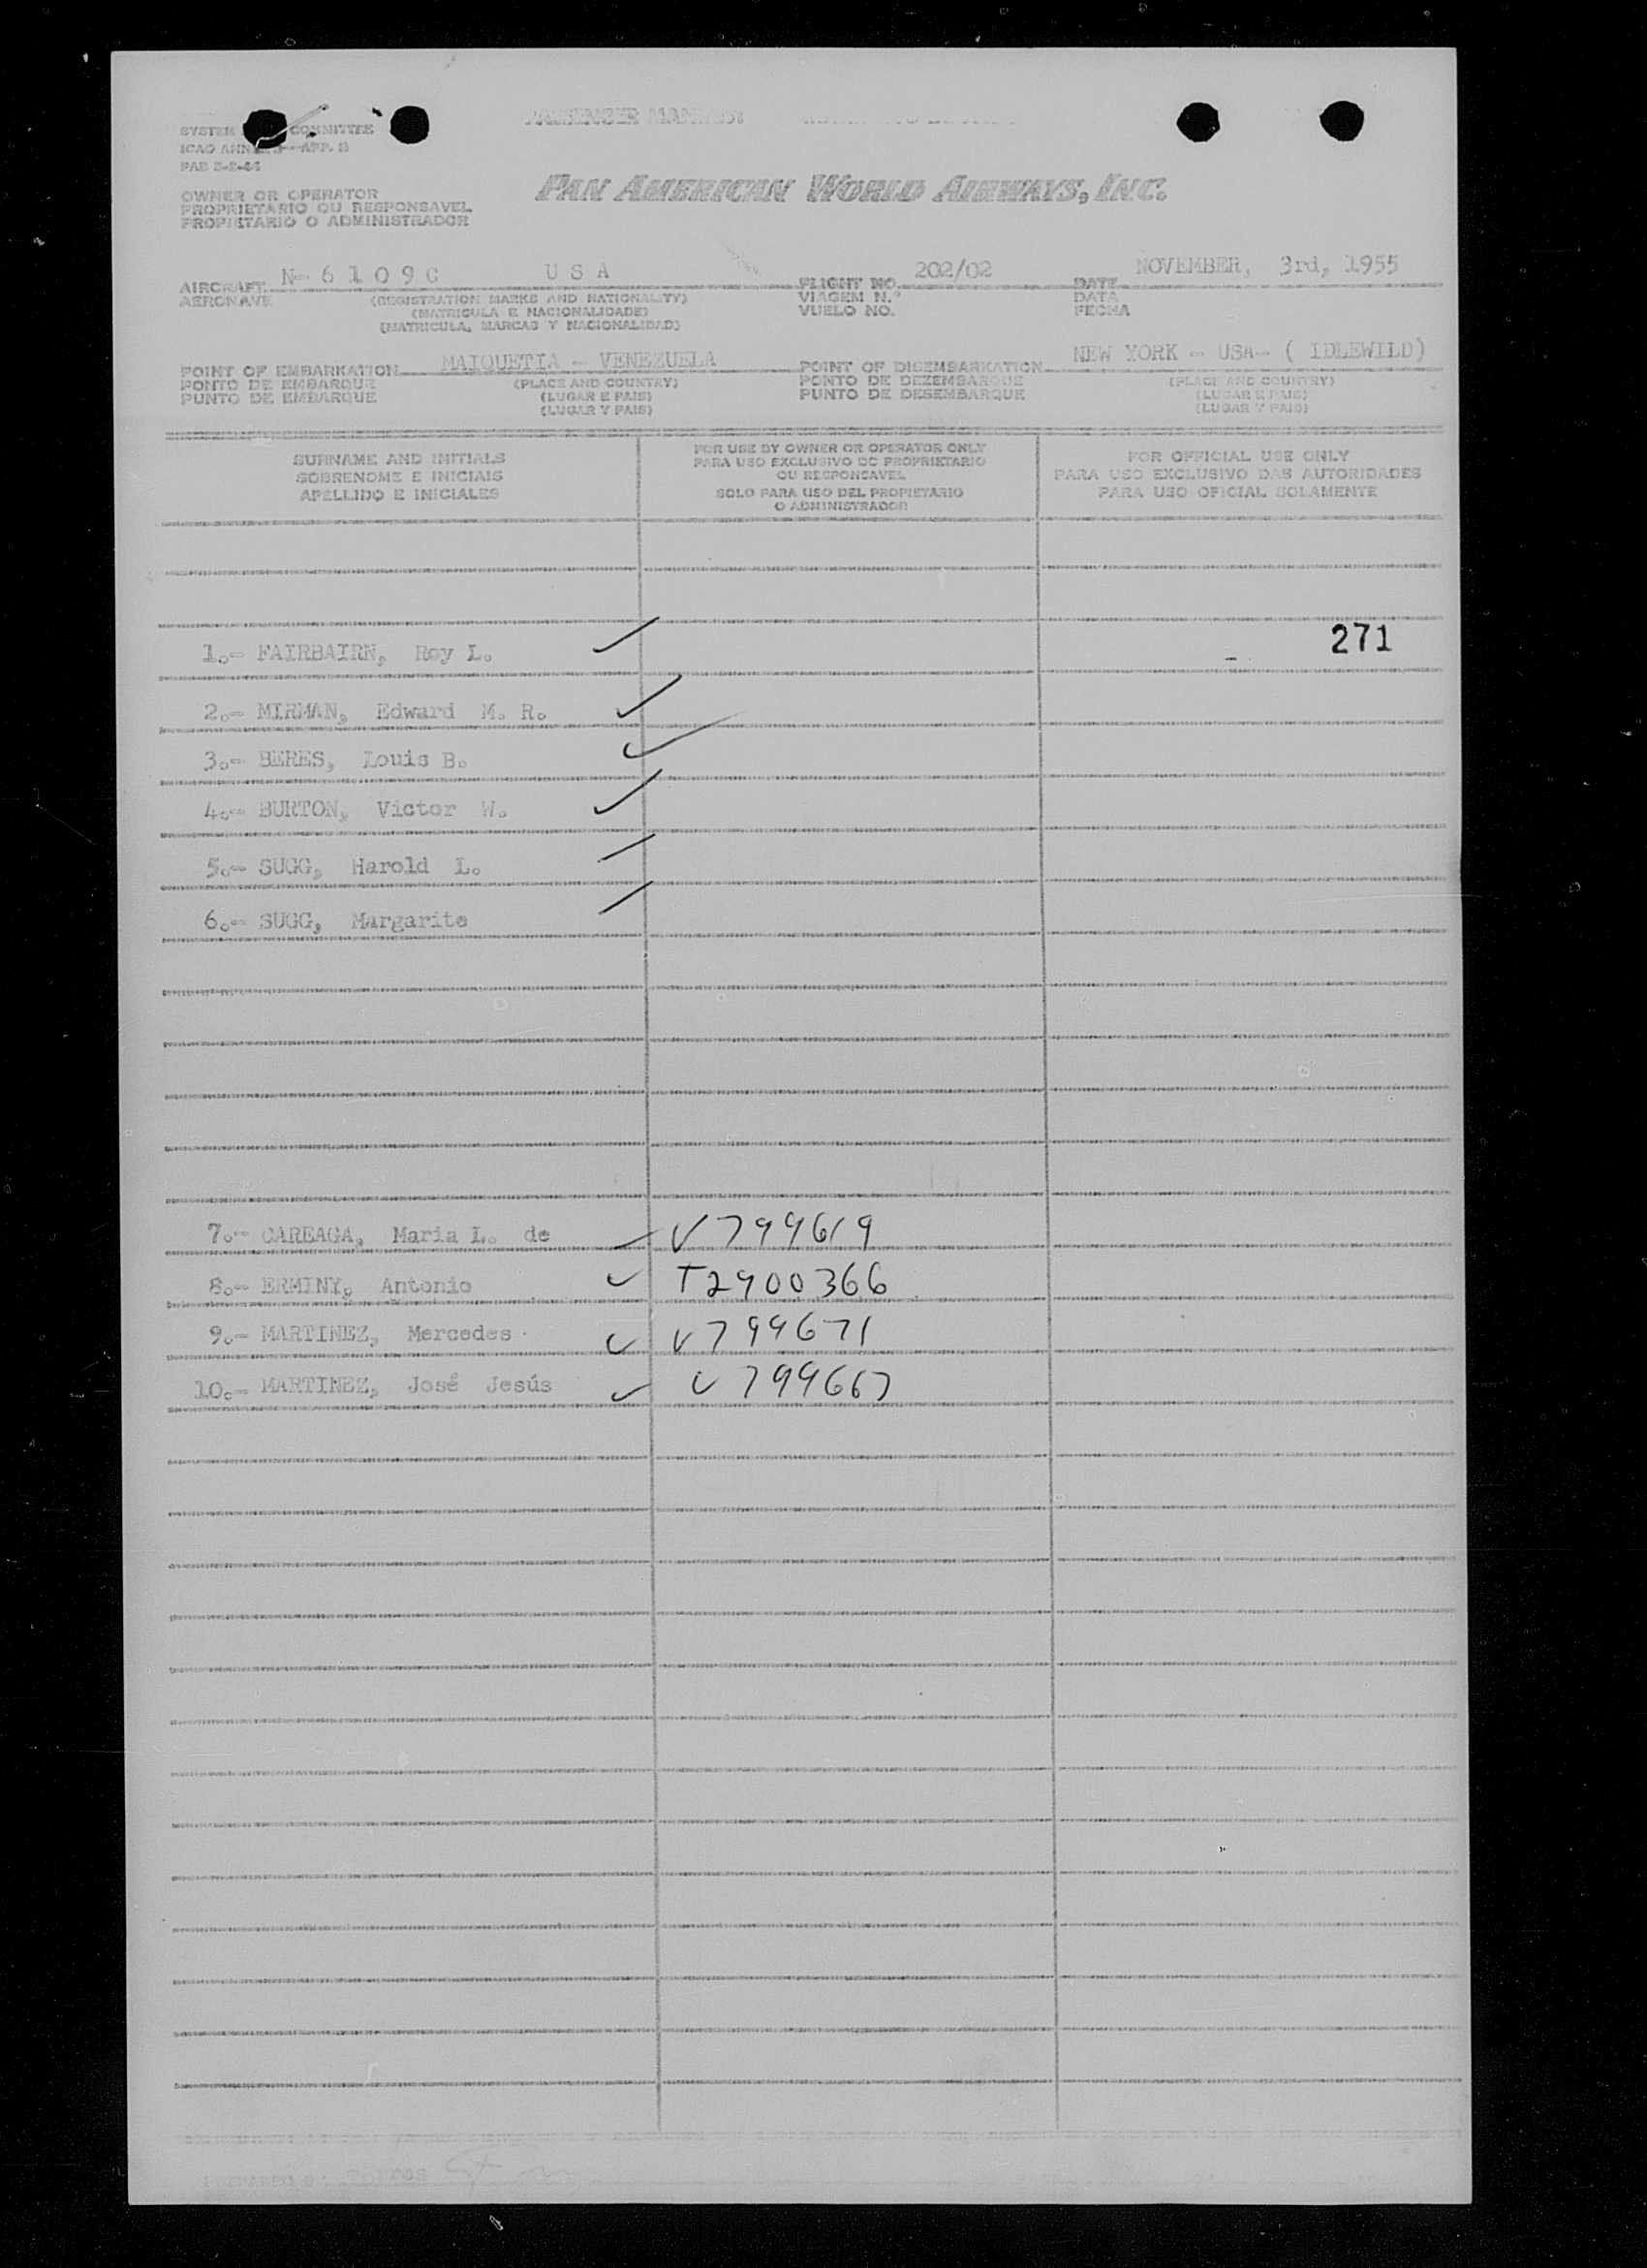 PASSENGER MANIFEST
SYSTEM COMMITTEE
ICAO ANN APP. B
OWNER OR OPERATOR
PROPRIETARIO OU RESPONSAVEL
PROPIETARIO O ADMINISTRADOR
PAN AMERICAN WORLD AIRWAYS, INC.
AIRCRAFT N- 6 1 0 9 C U S A FLIGHT NO. 202/02 DATE NOVEMBER, 3rd, 1955
AERONAVE (REGISTRATION MARKS AND NATIONALITY) VIAGEM N.º DATA
(MATRICULA E NACIONALIDADE) VUELO NO. FECHA
(MATRICULA, MARCAS Y NACIONALIDAD)
POINT OF EMBARKATION MAIQUETIA - VENEZUELA POINT OF DISEMBARKATION NEW YORK - USA- ( IDLEWILD)
PONTO DE EMBARQUE (PLACE AND COUNTRY) PONTO DE DEZEMBARQUE (PLACE AND COUNTRY)
PUNTO DE EMBARQUE (LUGAR E PAIS) PUNTO DE DESEMBARQUE (LUGAR E PAIS)
(LUGAR Y PAIS) (LUGAR Y PAIS)
SURNAME AND INITIALS
SOBRENOME E INICIAIS
APELLIDO E INICIALES
FOR USE BY OWNER OR OPERATOR ONLY
PARA USO EXCLUSIVO DO PROPRIETARIO
OU RESPONSAVEL
SOLO PARA USO DEL PROPIETARIO
O ADMINISTRADOR
FOR OFFICIAL USE ONLY
PARA USO EXCLUSIVO DAS AUTORIDADES
PARA USO OFICIAL SOLAMENTE
271
1.- FAIRBAIRN, Roy L.
2.- MIRMAN, Edward M. R.
3.- BERES, Louis B.
4.- BURTON, Victor W.
5.- SUGG, Harold L.
6.- SUGG, Margarite
7.- CAREAGA, Maria L. de V799619
8.- ERMINY, Antonio T2900366
9.- MARTINEZ, Mercedes V799671
10.- MARTINEZ, José Jesús V799667